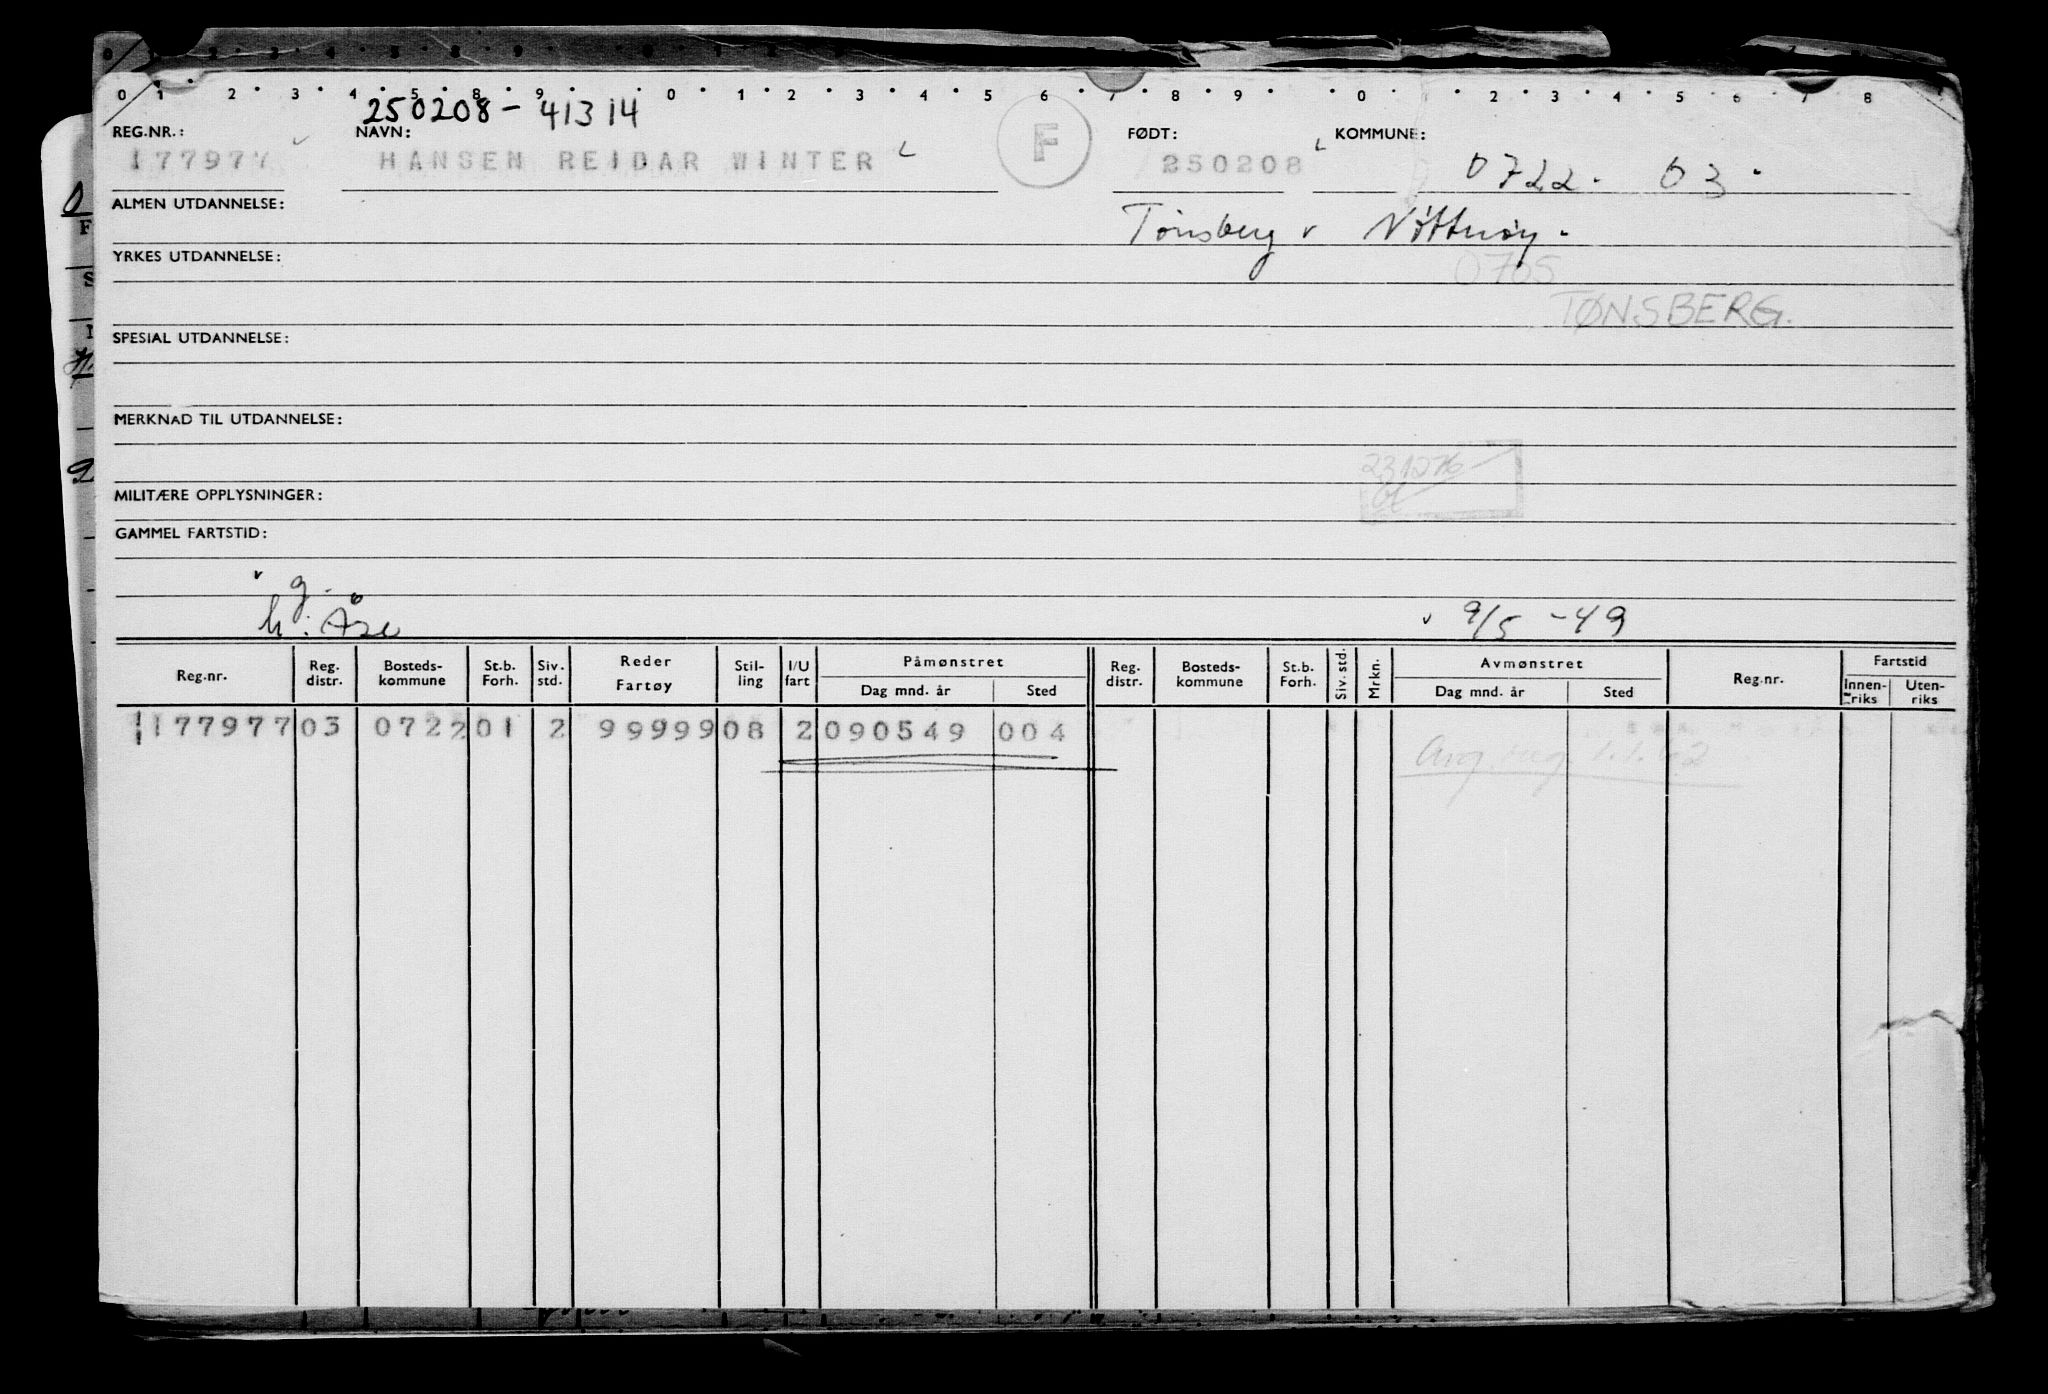 0 1 2 3 4 5 8 9 0 1 2 3 4 5 6 7 8 9 0 1 2 3 4 5 6 7 8
250208 - 41314
REG.NR.: NAVN: F FØDT: KOMMUNE:
177977 HANSEN REIDAR WINTER 250208 0722. 03.
ALMEN UTDANNELSE: Tønsberg v Nøtterøy.
YRKES UTDANNELSE: 0705
TØNSBERG.
SPESIAL UTDANNELSE:
MERKNAD TIL UTDANNELSE:
231276
MILITÆRE OPPLYSNINGER:
GAMMEL FARTSTID:
g.
h: Åse 9/5 -49
Reg.nr. Reg. distr. Bosteds-kommune St.b. Forh. Siv. std. Reder Fartøy Stil-ling I/U fart Påmønstret Dag mnd. år Sted Reg. distr. Bosteds-kommune St.b. Forh. Siv. std. Mrkn. Avmønstret Dag mnd. år Sted Reg.nr. Fartstid Innen-riks Uten-riks
177977 03 0722 01 2 99999 08 2 090549 004